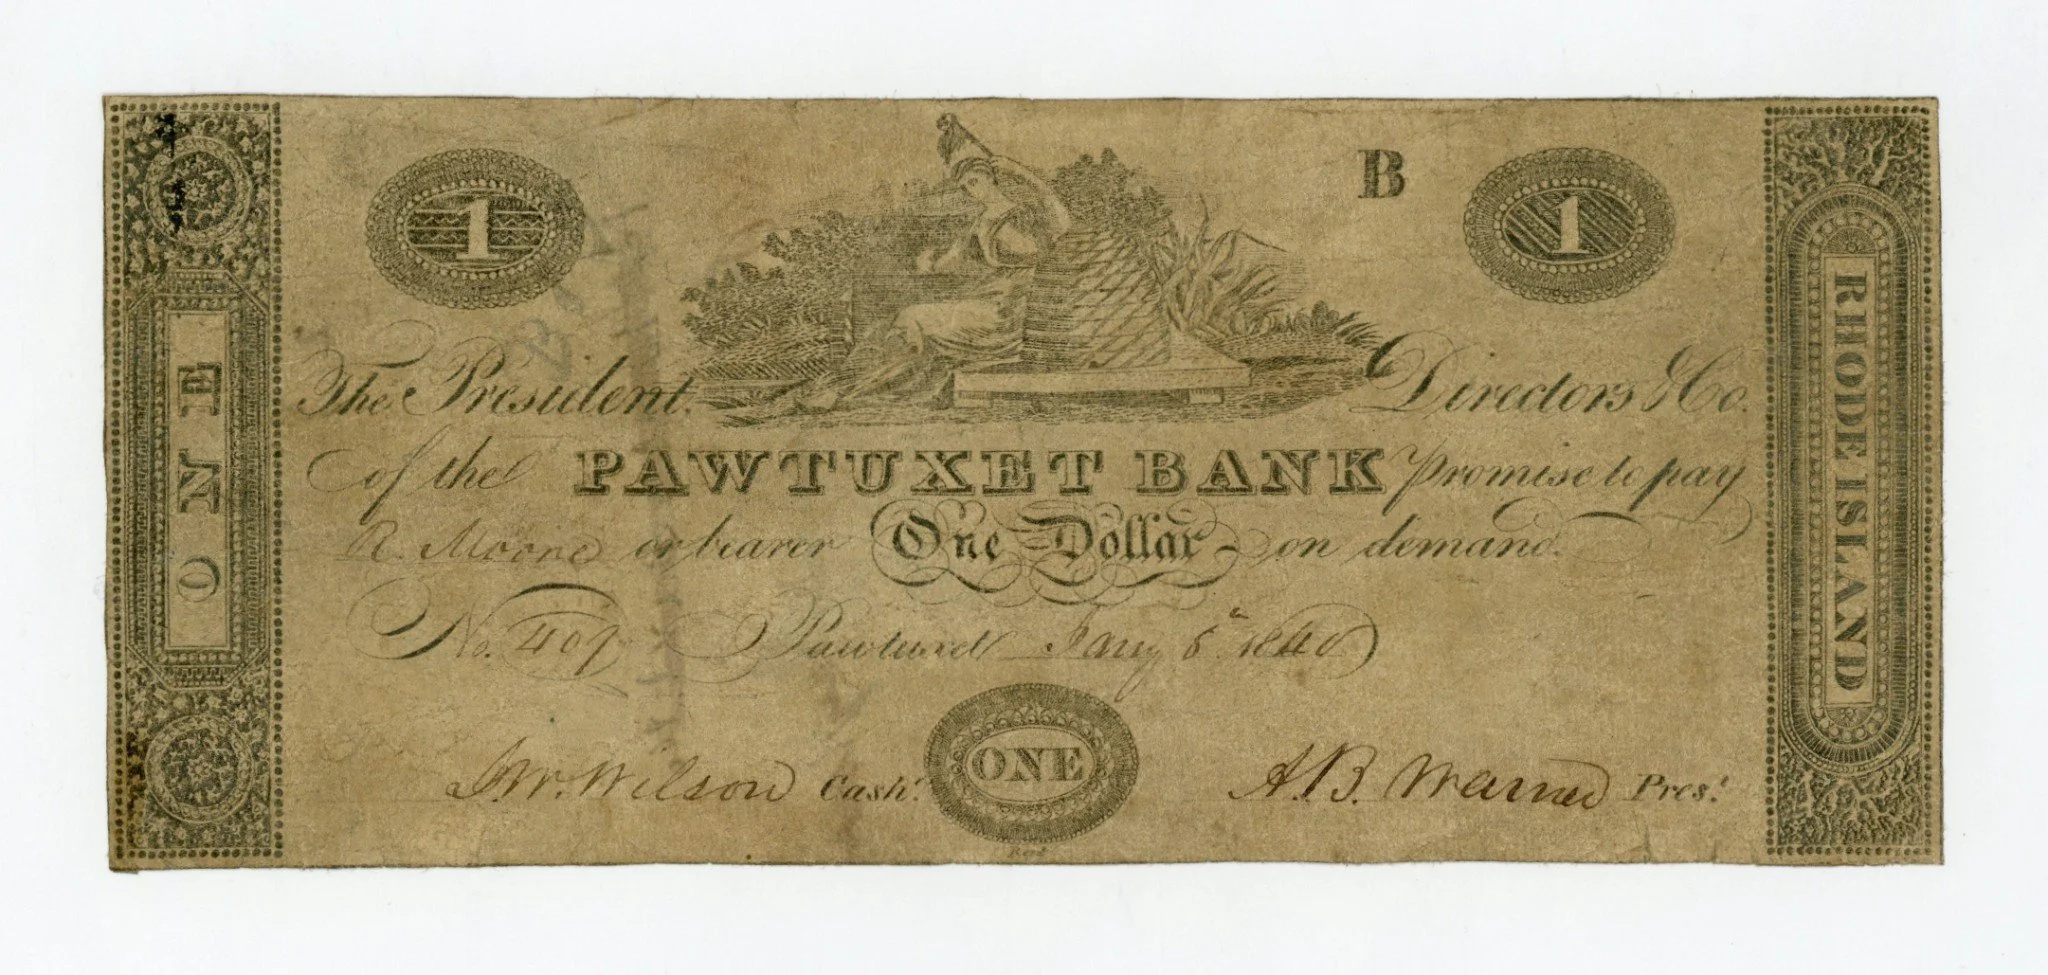 B
1
1
The President Directors & Co.
of the PAWTUXET BANK Promise to pay
R. Moore or bearer One Dollar on demand.
No. 409 Pawtuxet Jany 5th 1840
J.W. Wilson Cashr. ONE A.B. Warner Prest.
ONE
RHODE ISLAND